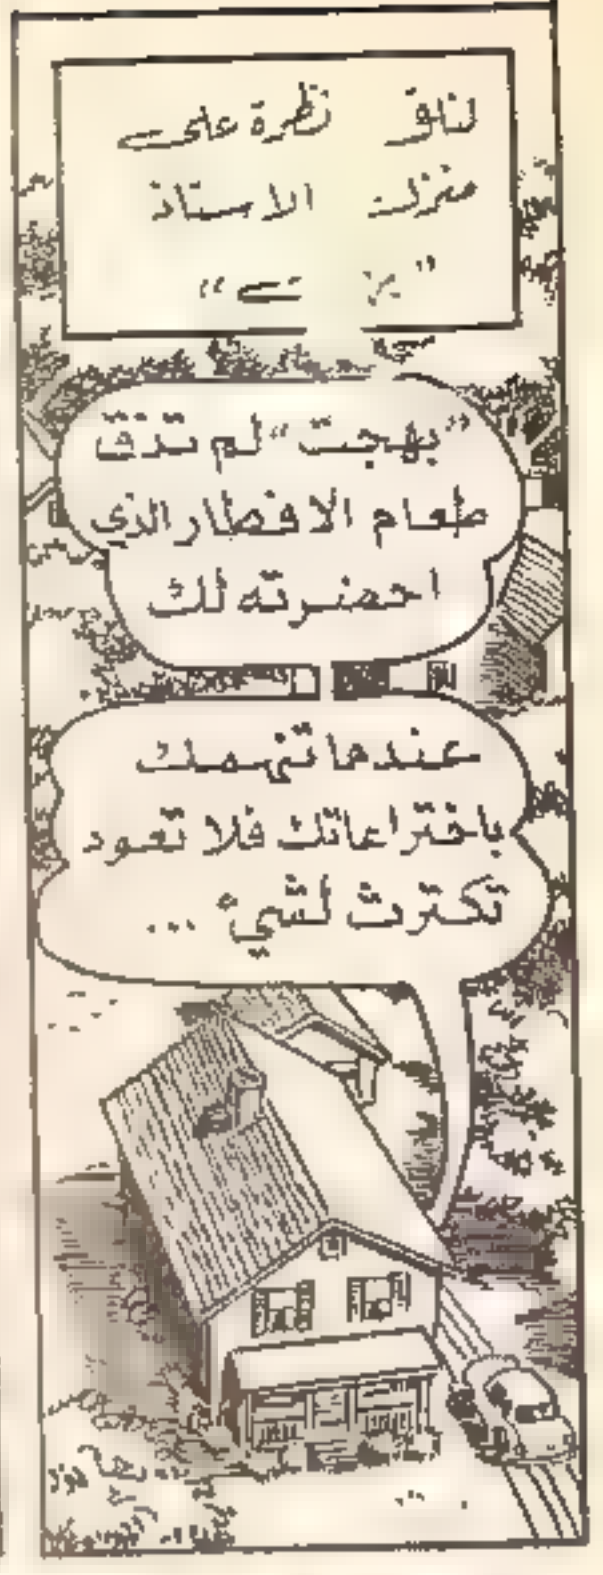 لنلق نظرة على
منزل الاستاذ
"بهجت" لم تذق
طعام الافطار الذي
احضرته لك
عندما تنهمك
باختراعاتك فلا تعود
تكترث لشيء ...